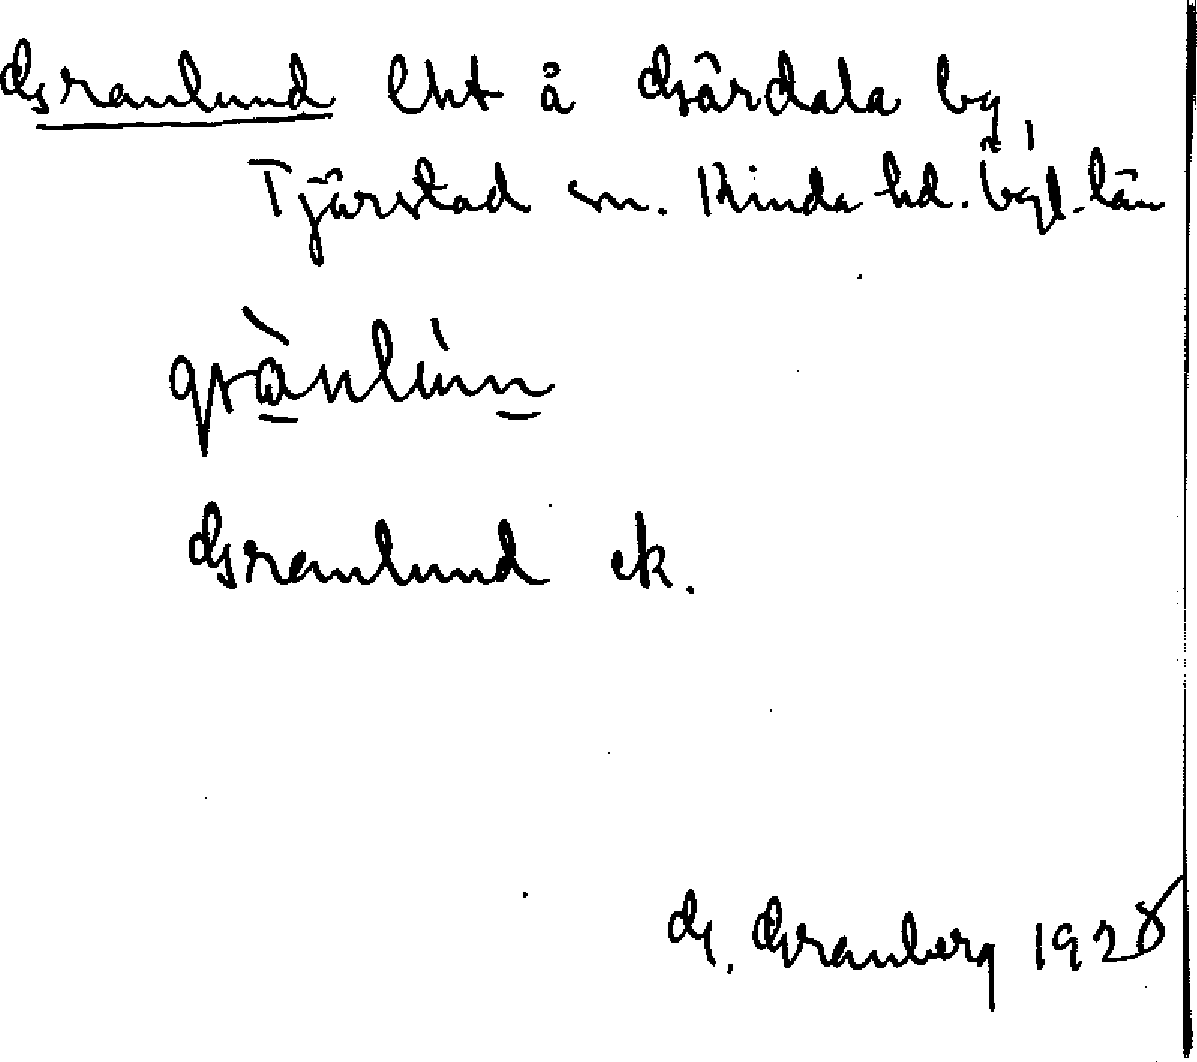 Granlund lht å Gärdala by,
Tjärstad sn. Kinda hd. Ögl. län
grànlùnn
Granlund ek.
G. Granberg 1928